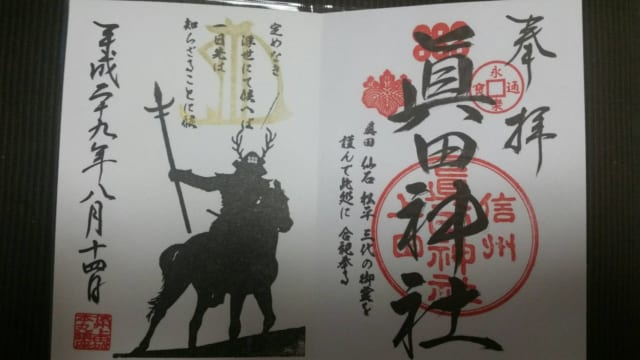 奉拝
眞田神社
永楽通寳
信州
上田
眞田神社
真田 仙石 松平 三代の御霊を
謹んで此処に 合祀奉る
定めなき
浮世にて候へば
一日先は
知らざることに候
平成二十九年八月十四日